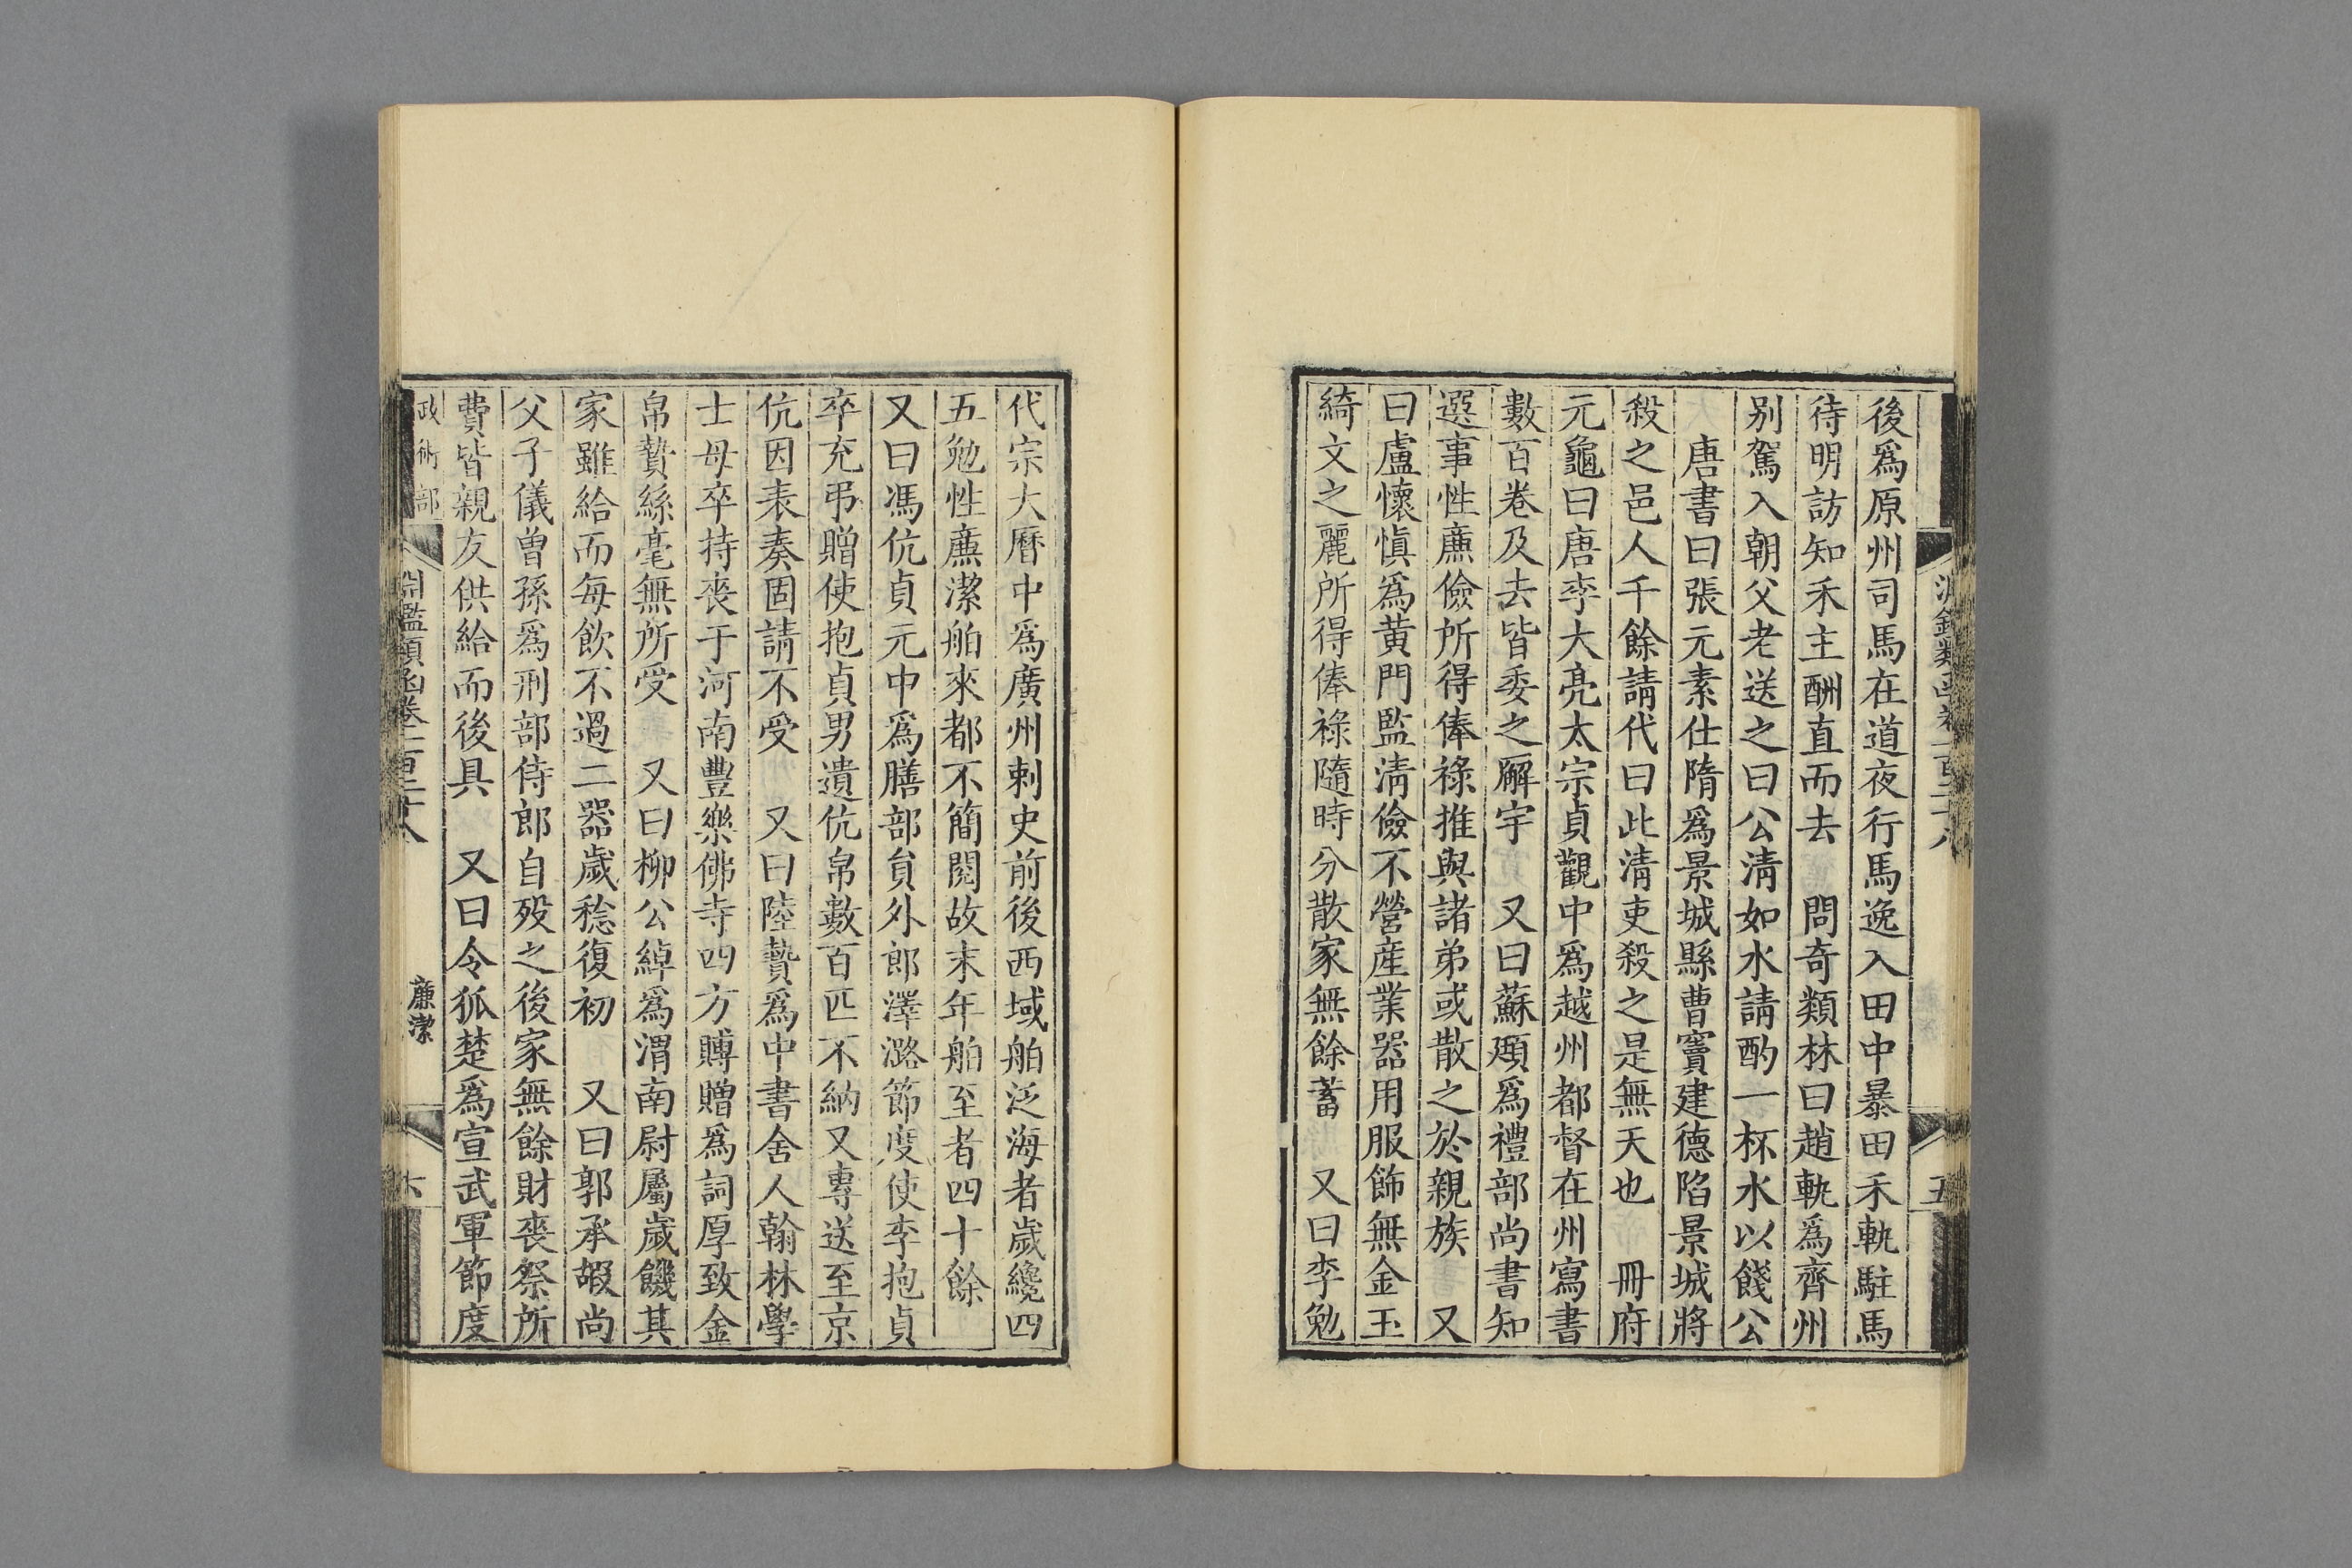 後爲原州司馬在道夜行馬逸入田中暴田禾軌駐馬
待明訪知禾主酬直而去　問奇類林曰趙軌爲齊州
别駕入朝父老送之曰公淸如水請酌一杯水以餞公
唐書曰張元素仕隋爲景城縣曹竇建德陷景城將
殺之邑人千餘請代曰此淸吏殺之是無天也　冊府
元龜曰唐李大亮太宗貞觀中爲越州都督在州寫書
數百卷及去皆委之廨宇　又曰蘇頲爲禮部尚書知
選事性廉儉所得俸祿推與諸弟或散之於親族　又
曰盧懷愼爲黄門監淸儉不營産業器用服飾無金玉
綺文之麗所得俸祿隨時分散家無餘蓄　又曰李勉
五
代宗大曆中爲廣州刺史前後西域舶泛海者歲纔四
五勉性廉潔舶來都不簡閱故末年舶至者四十餘
又曰馮伉貞元中爲膳部貟外郎澤潞節度使李抱貞
卒充弔贈使抱貞男遺伉帛數百匹不納又專送至京
伉因表奏固請不受　又曰陸贄爲中書舍人翰林學
士母卒持喪于河南豐樂佛寺四方賻贈爲詞厚致金
帛贄絲毫無所受　又曰柳公綽爲渭南尉屬歲饑其
家雖給而每飲不過二器歲稔復初　又曰郭承嘏尚
父子儀曾孫爲刑部侍郎自殁之後家無餘財喪祭所
費皆親友供給而後具　又曰令狐楚爲宣武軍節度
政術部　淵鑑類函卷一百二十八　廉潔　六